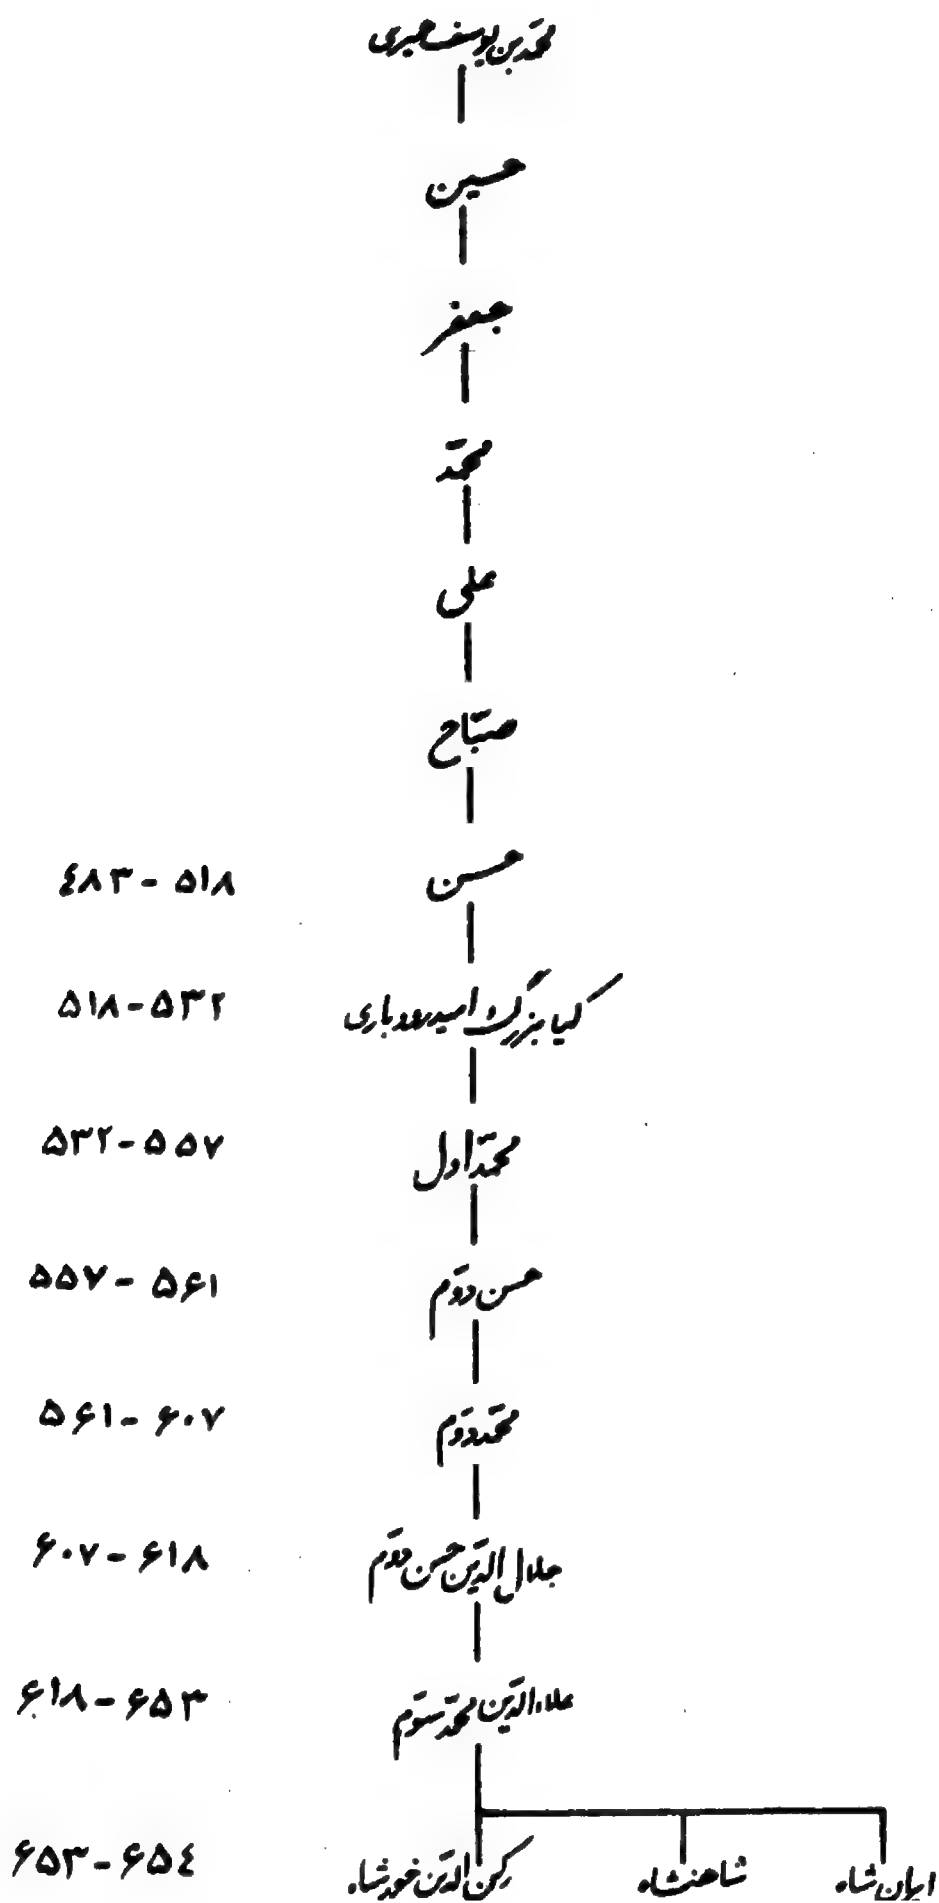 محمّد بن یوسف حمیری
حسین
جعفر
محمّد
علی
صبّاح
حسن ۴۸۳ - ۵۱۸
کیا بزرگ امید رودباری ۵۱۸ - ۵۳۲
محمّد اول ۵۳۲ - ۵۵۷
حسن دوّم ۵۵۷ - ۵۶۱
محمّد دوّم ۵۶۱ - ۶۰۷
جلال الدّین حسن دوّم ۶۰۷ - ۶۱۸
علاءالدّین محمّد سوّم ۶۱۸ - ۶۵۳
ایران شاه شاهنشاه رکن الدّین خورشاه ۶۵۳ - ۶۵۴